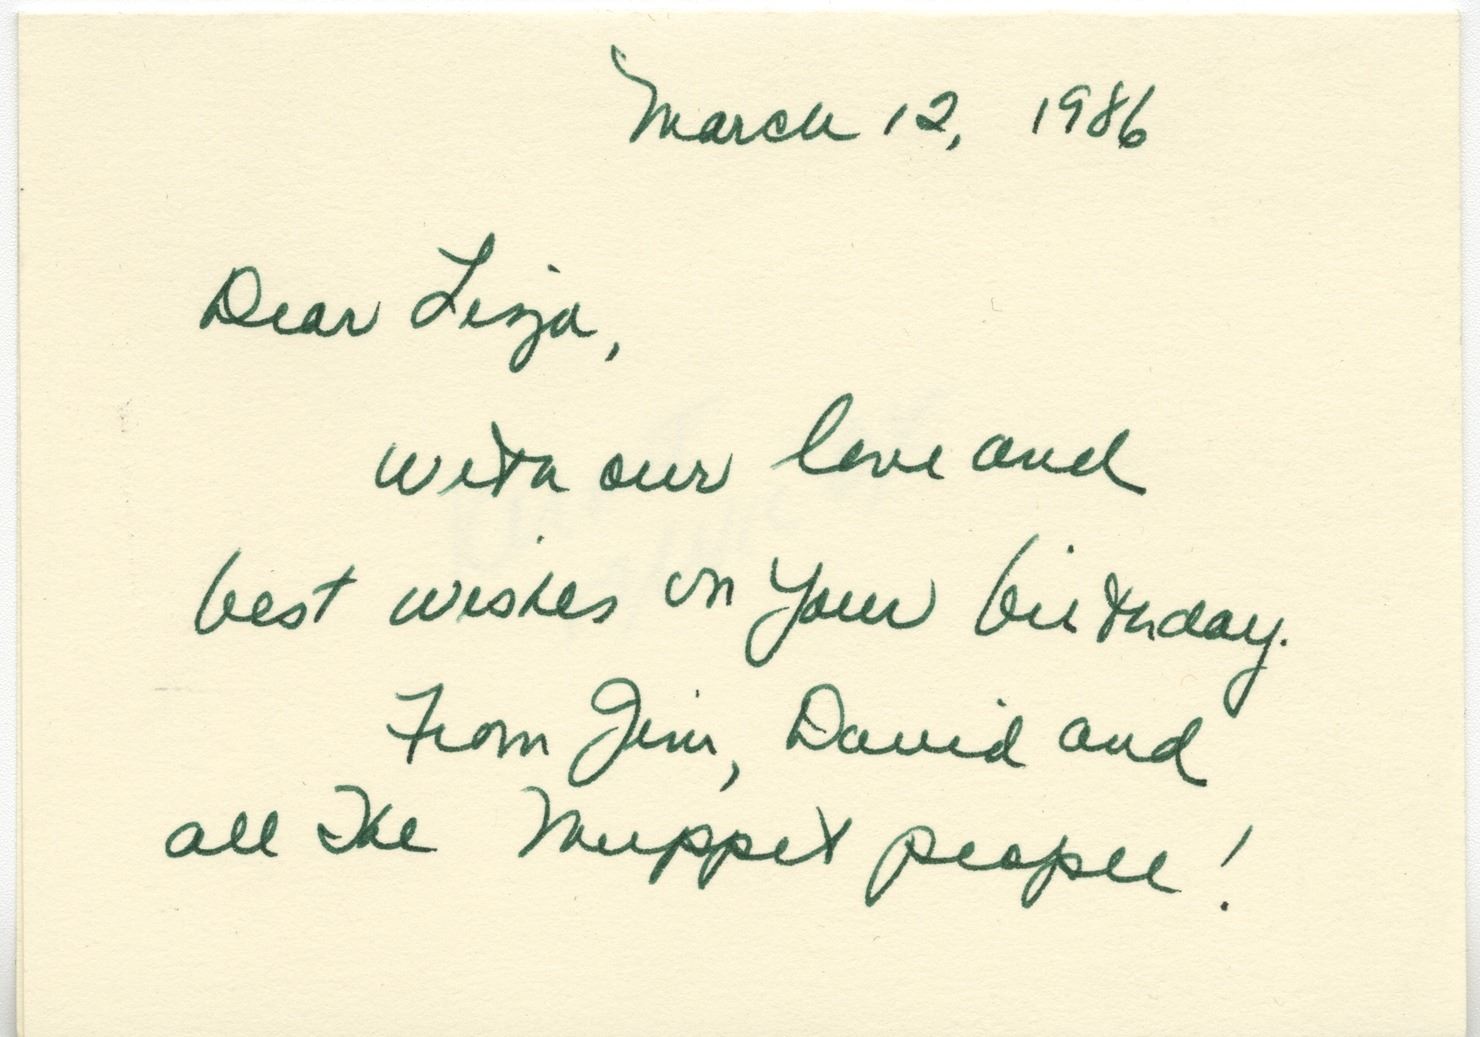 March 12, 1986
Dear Liza,
with our love and
best wishes on your birthday.
From Jim, David and
all the Muppet people!